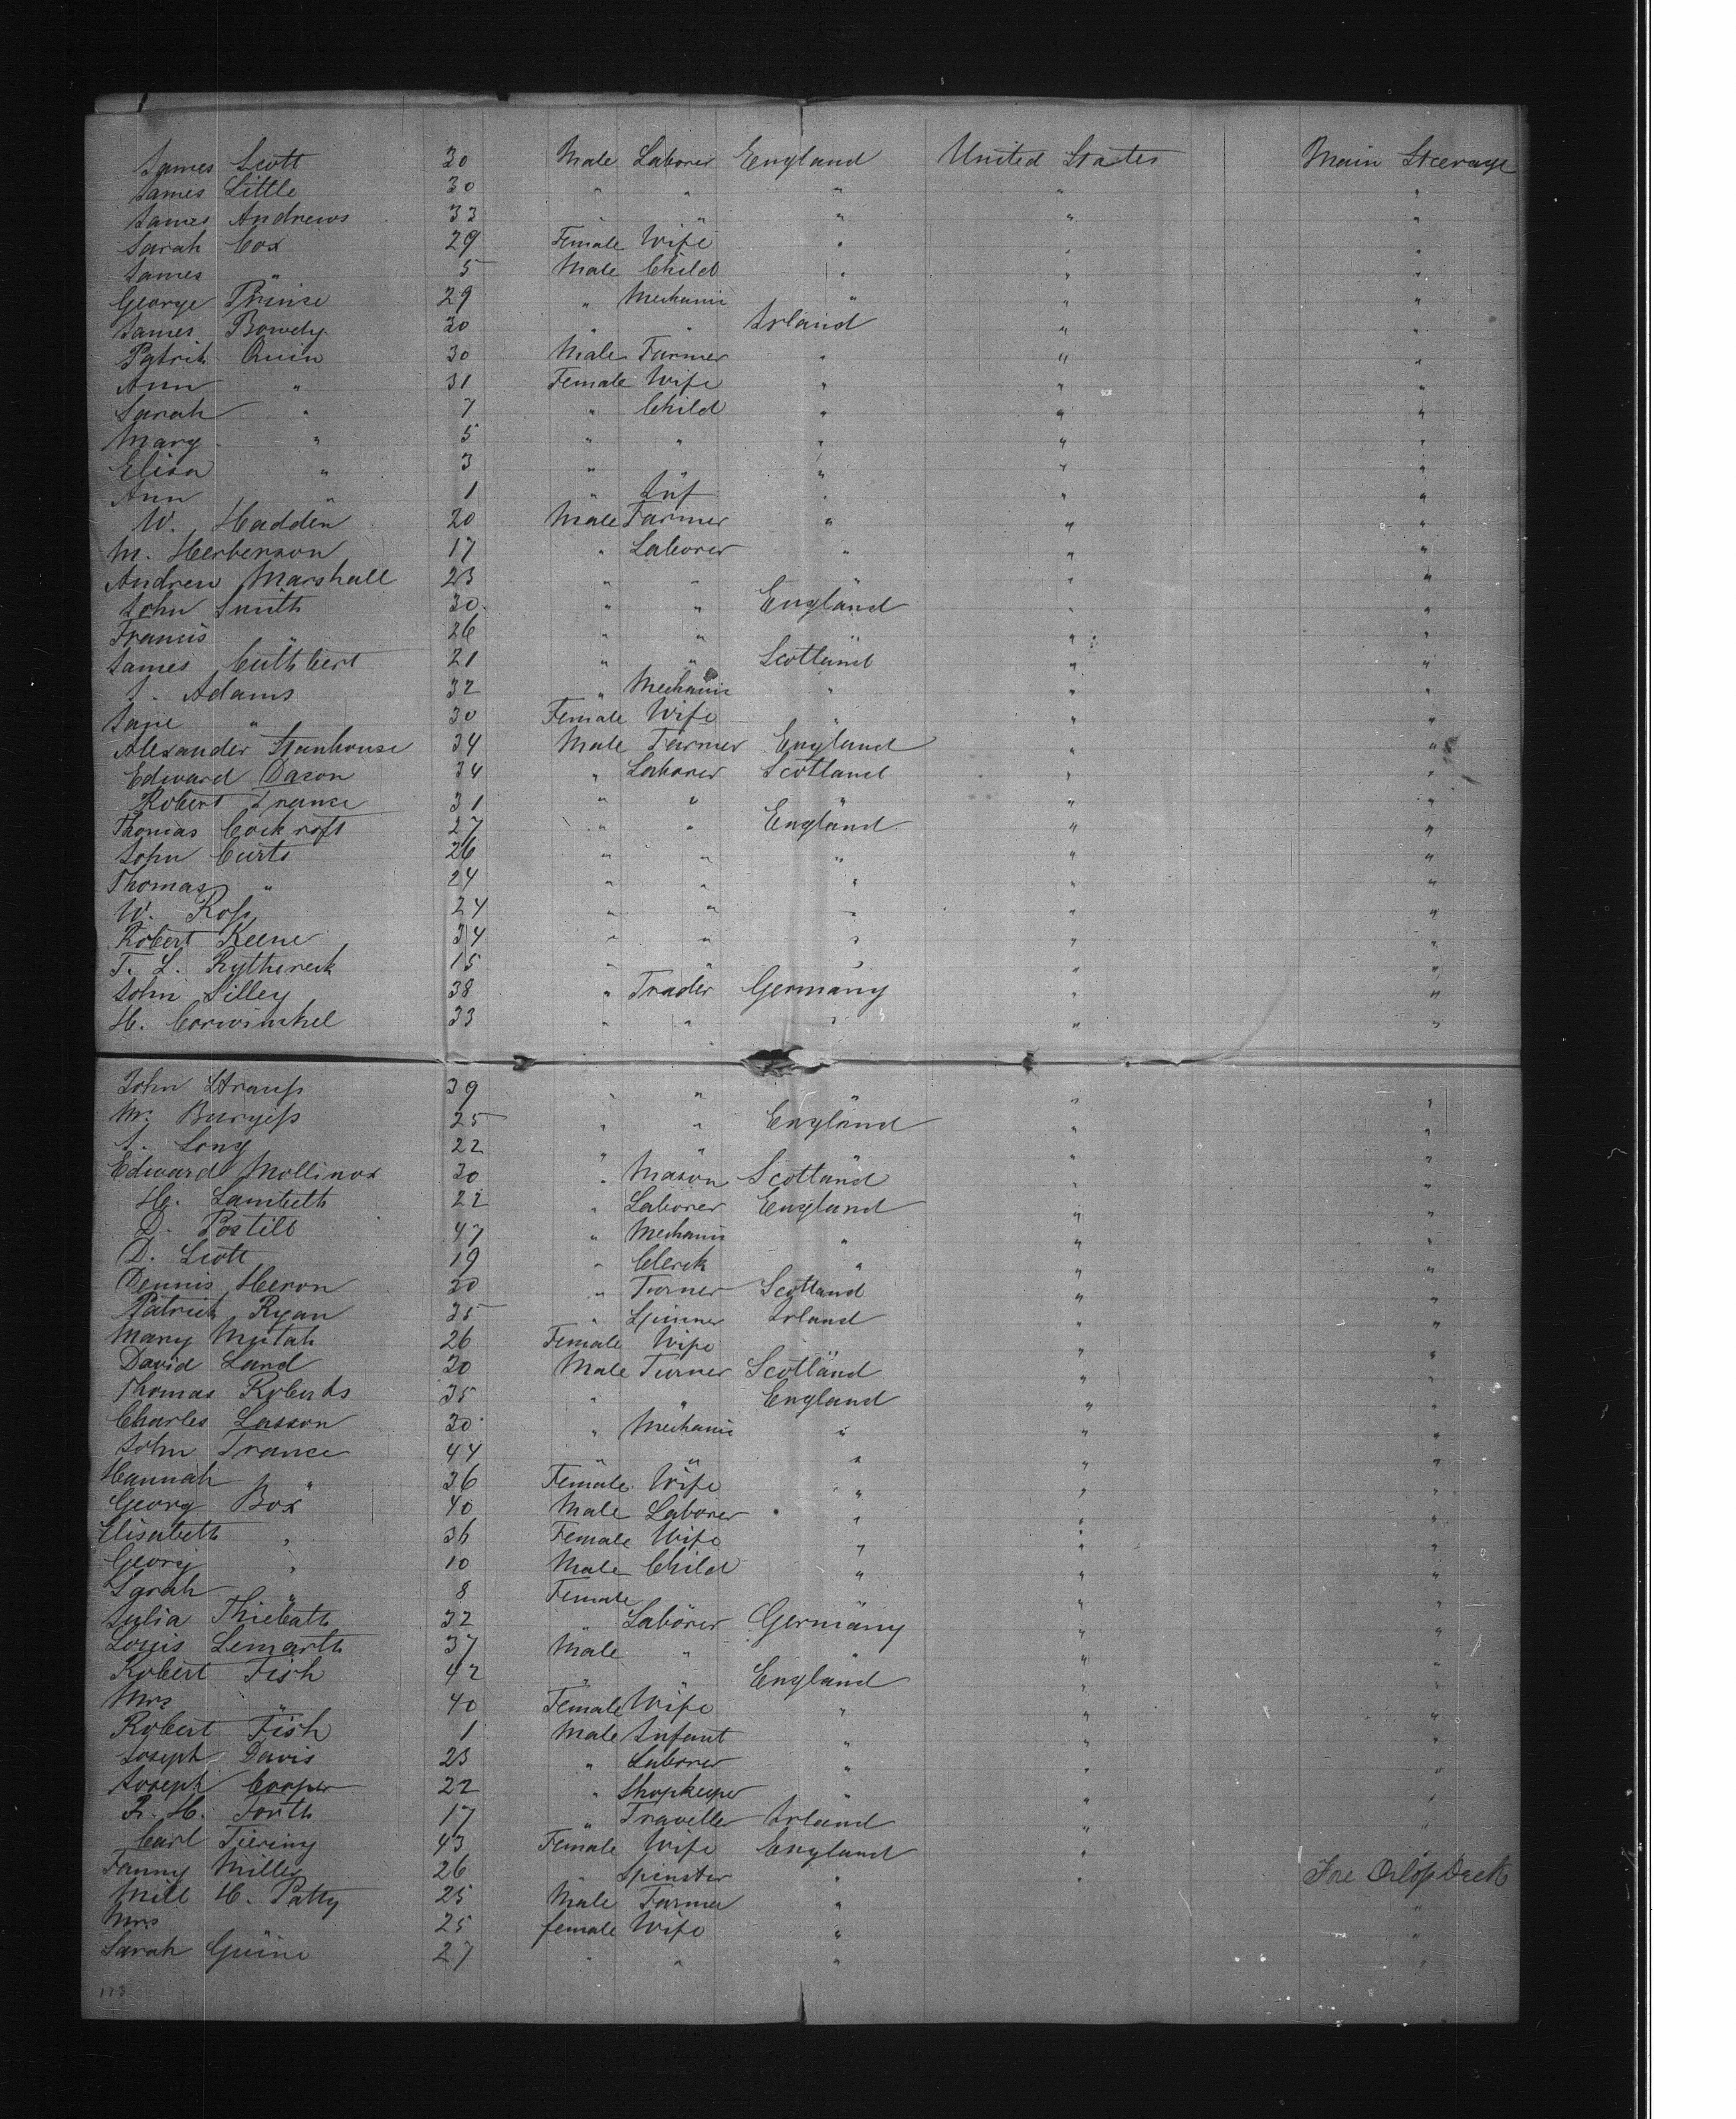 James Scott 30 Male Laborer England United States Main Steerage
James Little 30 " " " " "
James Andrews 33 " " " " "
Sarah Cox 29 Female Wife " " "
James " 5 Male Child " " "
George Prinse 29 " Mechanic " " "
James Bowdy 30 " " Irland " "
Patrick Quin 30 Male Farmer " " "
Ann " 31 Female Wife " " "
Sarah " 7 " Child " " "
Mary " 5 " " " " "
Elisa " 3 " " " " "
Ann " 1 " Inf " " "
W. Hadden 20 Male Farmer " " "
M. Herberson 17 " Laborer " " "
Andrew Marshall 23 " " " " "
John Smith 30 " " England " "
Francis " 26 " " " " "
James Cuthbert 21 " " Scotland " "
J. Adams 32 " Mechanic " " "
Jane " 30 Female Wife " "
Alexander Stanhouse 34 Male Farmer England " "
Edward Dason 34 " Laborer Scotland " "
Robert France 31 " " " " "
Thomas Cockroft 27 " " England " "
John Curts 26 " " " " "
Thomas " 24 " " " " "
W. Ross 24 " " " " "
Robert Keene 34 " " " " "
T. L. Rythereck 15 " " " " "
John Silley 38 " Trader Germany " "
H. Corwinkel 33 " " " " "
John Strauss 39 " " " " "
W. Burgess 25 " " England " "
A. Long 22 " " " " "
Edward Mollinox 30 " Mason Scotland " "
Hy. Lambeth 22 " Laborer England " "
D. Postill 47 " Mechanic " " "
D. Scott 19 " Clerk " " "
Dennis Heron 20 " Turner Scotland " "
Patrick Ryan 35 " Spinner Irland " "
Mary Mutah 26 Female Wife " "
David Land 20 Male Turner Scotland " "
Thomas Roberts 35 " " England " "
Charles Lasson 30 " Mechanic " " "
John France 44 " " " " "
Hannah " 36 Female Wife " " "
Georg Box 40 Male Laborer " " "
Elisabeth " 36 Female Wife " " "
Georg " 10 Male Child " " "
Sarah " 8 Female " "
Julia Thiebath 32 " Laborer Germany " "
Louis Limarth 37 Male " " " "
Robert Fish 42 " England " "
Mrs " 40 Female Wife " " "
Robert Fish 1 Male Infant " " "
Joseph Davis 23 " Laborer " " "
Joseph Cooper 22 " Shopkeeper " " "
R. H. Forth 17 " Traveller Irland " "
Carl Tiering 43 Female Wife England " "
Fanny Miller 26 " Spinster " " Fore Orlop Deck
Mill H. Patty 25 Male Farmer " "
Mrs 25 female Wife " "
Sarah Guine 27 " " " "
113